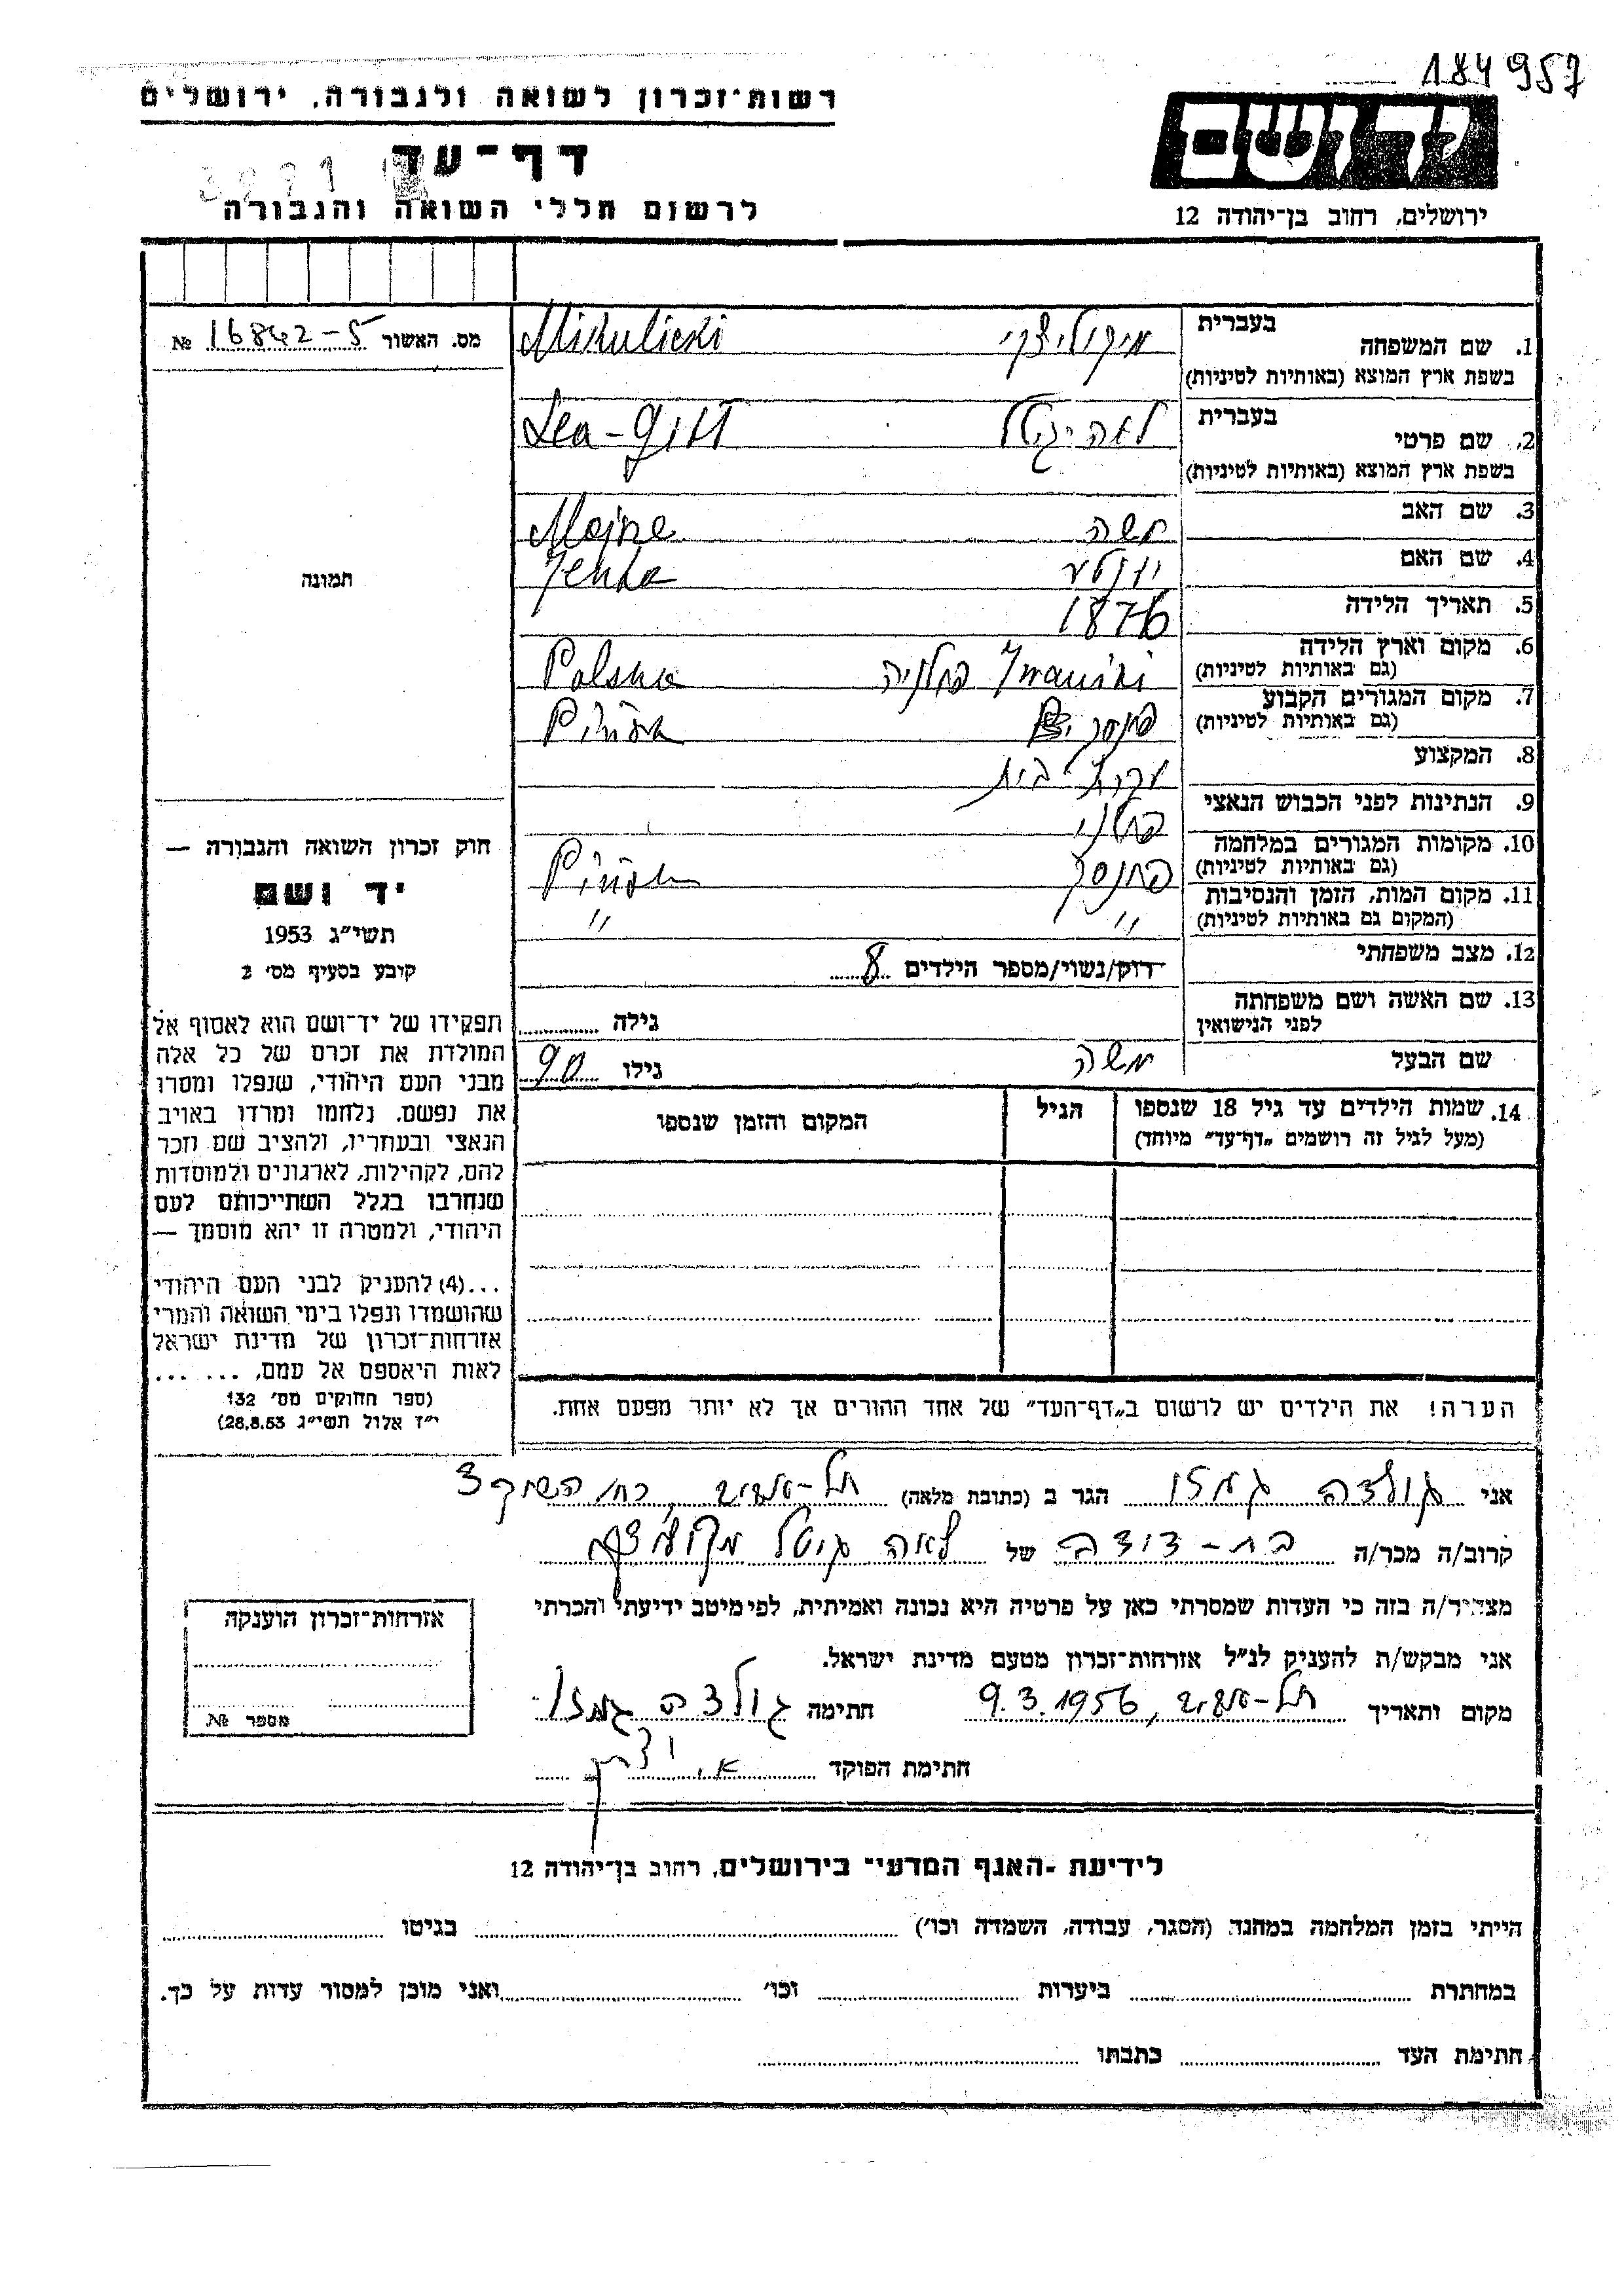 184957
רשות־זכרון לשואה ולגבורה, ירושלים
יד ושם
דף־עד
לרשום חללי השואה והגבורה
ירושלים, רחוב בן־יהודה 12
מס. האשור 16842-5 №
תמונה
חוק זכרון השואה והגבורה —
יד ושם
תשי״ג 1953
קובע בסעיף מס׳ 2
תפקידו של יד־ושם הוא לאסוף אל
המולדת את זכרם של כל אלה
מבני העם היהודי, שנפלו ומסרו
את נפשם, נלחמו ומרדו באויב
הנאצי ובעוזריו, ולהציב שם וזכר
להם, לקהילות, לארגונים ולמוסדות
שנחרבו בגלל השתייכותם לעם
היהודי, ולמטרה זו יהא מוסמך —
...(4) להעניק לבני העם היהודי
שהושמדו ונפלו בימי השואה והמרי
אזרחות־זכרון של מדינת ישראל
לאות היאספם אל עמם, ... ...
(ספר החוקים מס׳ 132
י״ז אלול תשי״ג 28.8.53)
1. שם המשפחה בעברית מיקוליצקי
בשפת ארץ המוצא (באותיות לטיניות) Mikulicki
2. שם פרטי בעברית לאה־גיטל
בשפת ארץ המוצא (באותיות לטיניות) Lea-Gitl
3. שם האב משה
4. שם האם Jenta
5. תאריך הלידה 1876
6. מקום וארץ הלידה Iwaniki פולניה Polska
(גם באותיות לטיניות)
7. מקום המגורים הקבוע פינסק
(גם באותיות לטיניות)
8. המקצוע עקרת־בית
9. הנתינות לפני הכבוש הנאצי פולני
10. מקומות המגורים במלחמה פינסק Pińsk
(גם באותיות לטיניות)
11. מקום המות, הזמן והנסיבות ״ ״
(המקום גם באותיות לטיניות)
12. מצב משפחתי רווק/נשוי/מספר הילדים 8
13. שם האשה ושם משפחתה גילה
לפני הנישואין
שם הבעל משה גילו 90
14. שמות הילדים עד גיל 18 שנספו הגיל המקום והזמן שנספו
(מעל לגיל זה רושמים „דף־עד״ מיוחד)
הערה! את הילדים יש לרשום ב„דף־העד״ של אחד ההורים אך לא יותר מפעם אחת.
אני גולדה גמזו הגר ב (כתובת מלאה) תל-אביב, רח׳ השוק 3
קרוב/ה מכר/ה בת-דודה של לאה גיטל מיקוליצקי
מצהיר/ה בזה כי העדות שמסרתי כאן על פרטיה היא נכונה ואמיתית, לפי מיטב ידיעתי והכרתי
אני מבקש/ת להעניק לנ״ל אזרחות־זכרון מטעם מדינת ישראל.
מקום ותאריך תל-אביב, 9.3.1956 חתימה גולדה גמזו
חתימת הפוקד
אזרחות־זכרון הוענקה
מספר №
לידיעת ־האגף המדעי־ בירושלים, רחוב בן־יהודה 12
הייתי בזמן המלחמה במחנה (הסגר, עבודה, השמדה וכו׳) בגיטו
במחתרת ביערות וכו׳ ואני מוכן למסור עדות על כך.
חתימת העד כתבתו